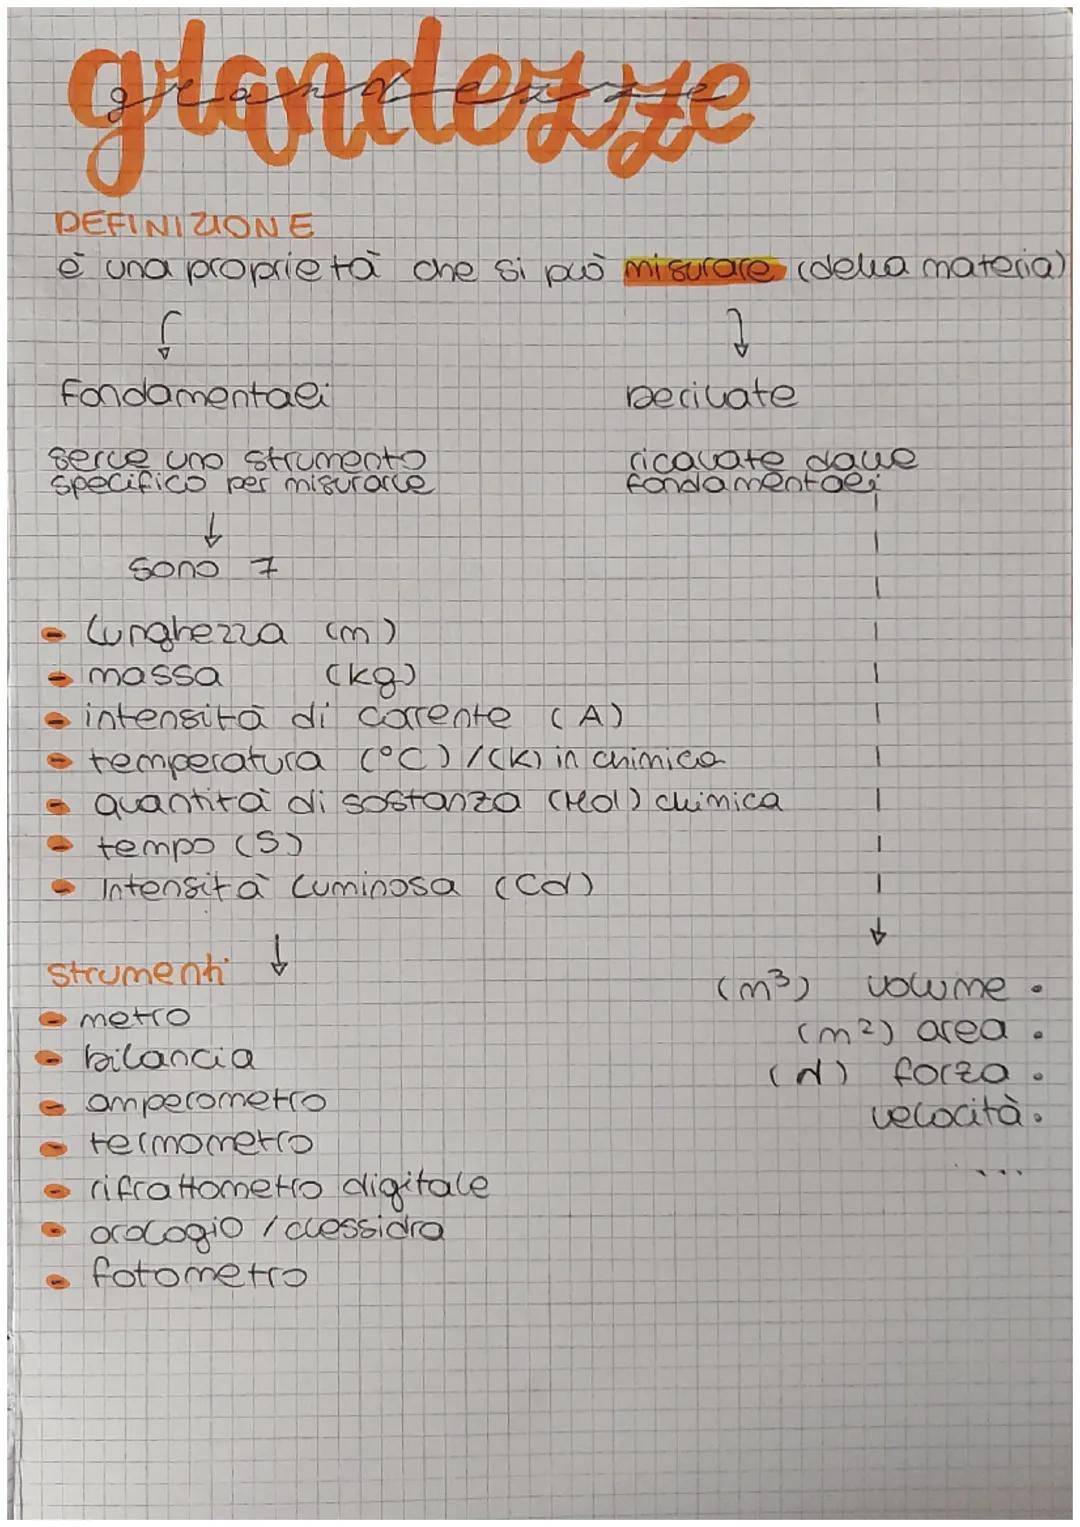 grandezze
grandezze
DEFINIZIONE
è una proprietà che si può misurare (della materia)
fondamentali
Derivate
serve uno strumento
specifico per misurarle
ricavate dalle
fondamentali
sono 7
- lunghezza (m)
- massa (kg)
- intensità di corrente (A)
- temperatura (°C) / (K) in chimica
- quantità di sostanza (Mol) chimica
- tempo (S)
- Intensità luminosa (Cd)
strumenti
- metro
- bilancia
- amperometro
- termometro
- rifrattometro digitale
- orologio / clessidra
- fotometro
(m³) volume •
(m²) area •
(N) forza •
velocità •
...